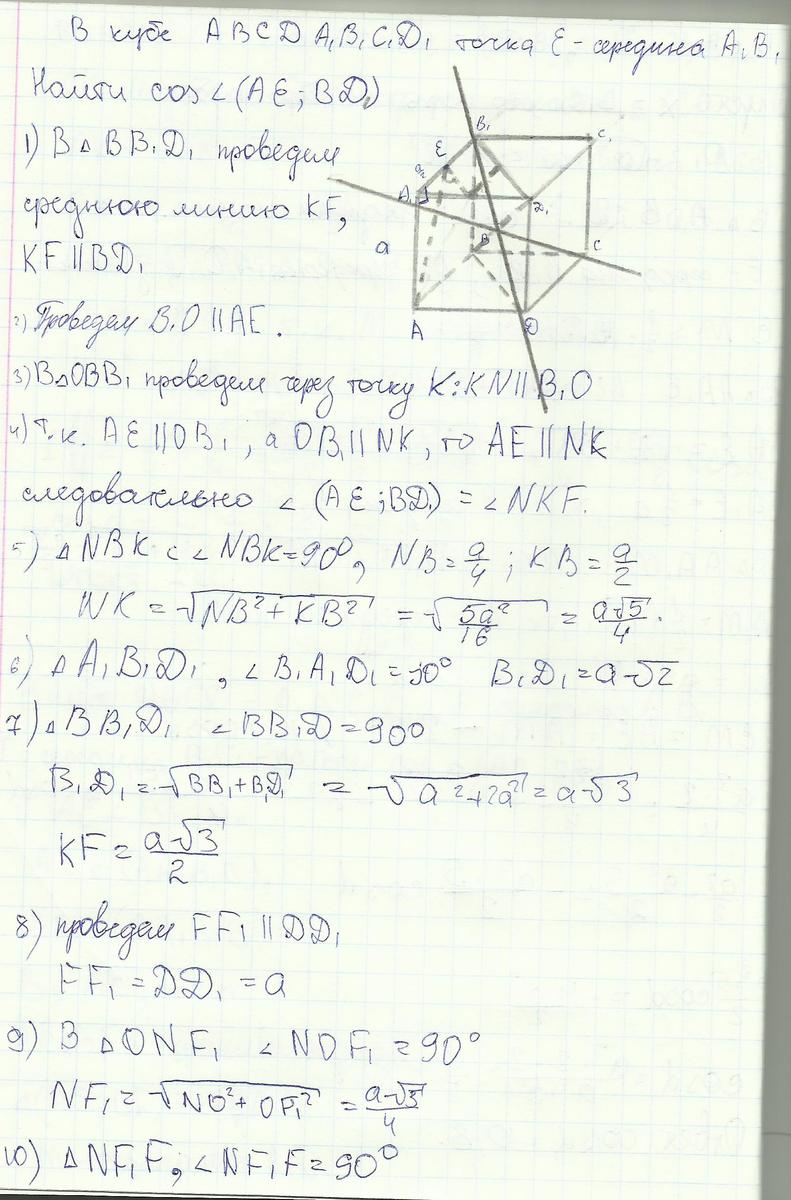 В кубе ABCDA₁B₁C₁D₁ точка E - середина A₁B₁
Найти cos∠(AE; BD₁)
1) В △ BB₁D₁ проведем
среднюю линию KF,
KF || BD₁
2) Проведем B₁O || AE.
3) В △OBB₁ проведем через точку K: KN || B₁O
4) т.к. AE || OB₁, а OB₁ || NK, то AE || NK
следовательно ∠(AE; BD₁) = ∠NKF.
5) △NBK с ∠NBK=90°, NB = a/4; KB = a/2
NK = √(NB²+KB²) = √(5a²/16) = a√5/4.
6) △A₁B₁D₁, ∠B₁A₁D₁=90° B₁D₁=a√2
7) △BB₁D₁ ∠BB₁D=90°
B₁D₁=√(BB₁+B₁D₁) = √(a²+2a²)=a√3
KF = a√3/2
8) проведем FF₁ || DD₁
FF₁ = DD₁ = a
9) В △ONF₁ ∠NOF₁ = 90°
NF₁=√(NO²+OF₁²) = a√5/4
10) △NF₁F, ∠NF₁F=90°
E
B₁
C₁
A₁
D₁
B
C
a
A
D